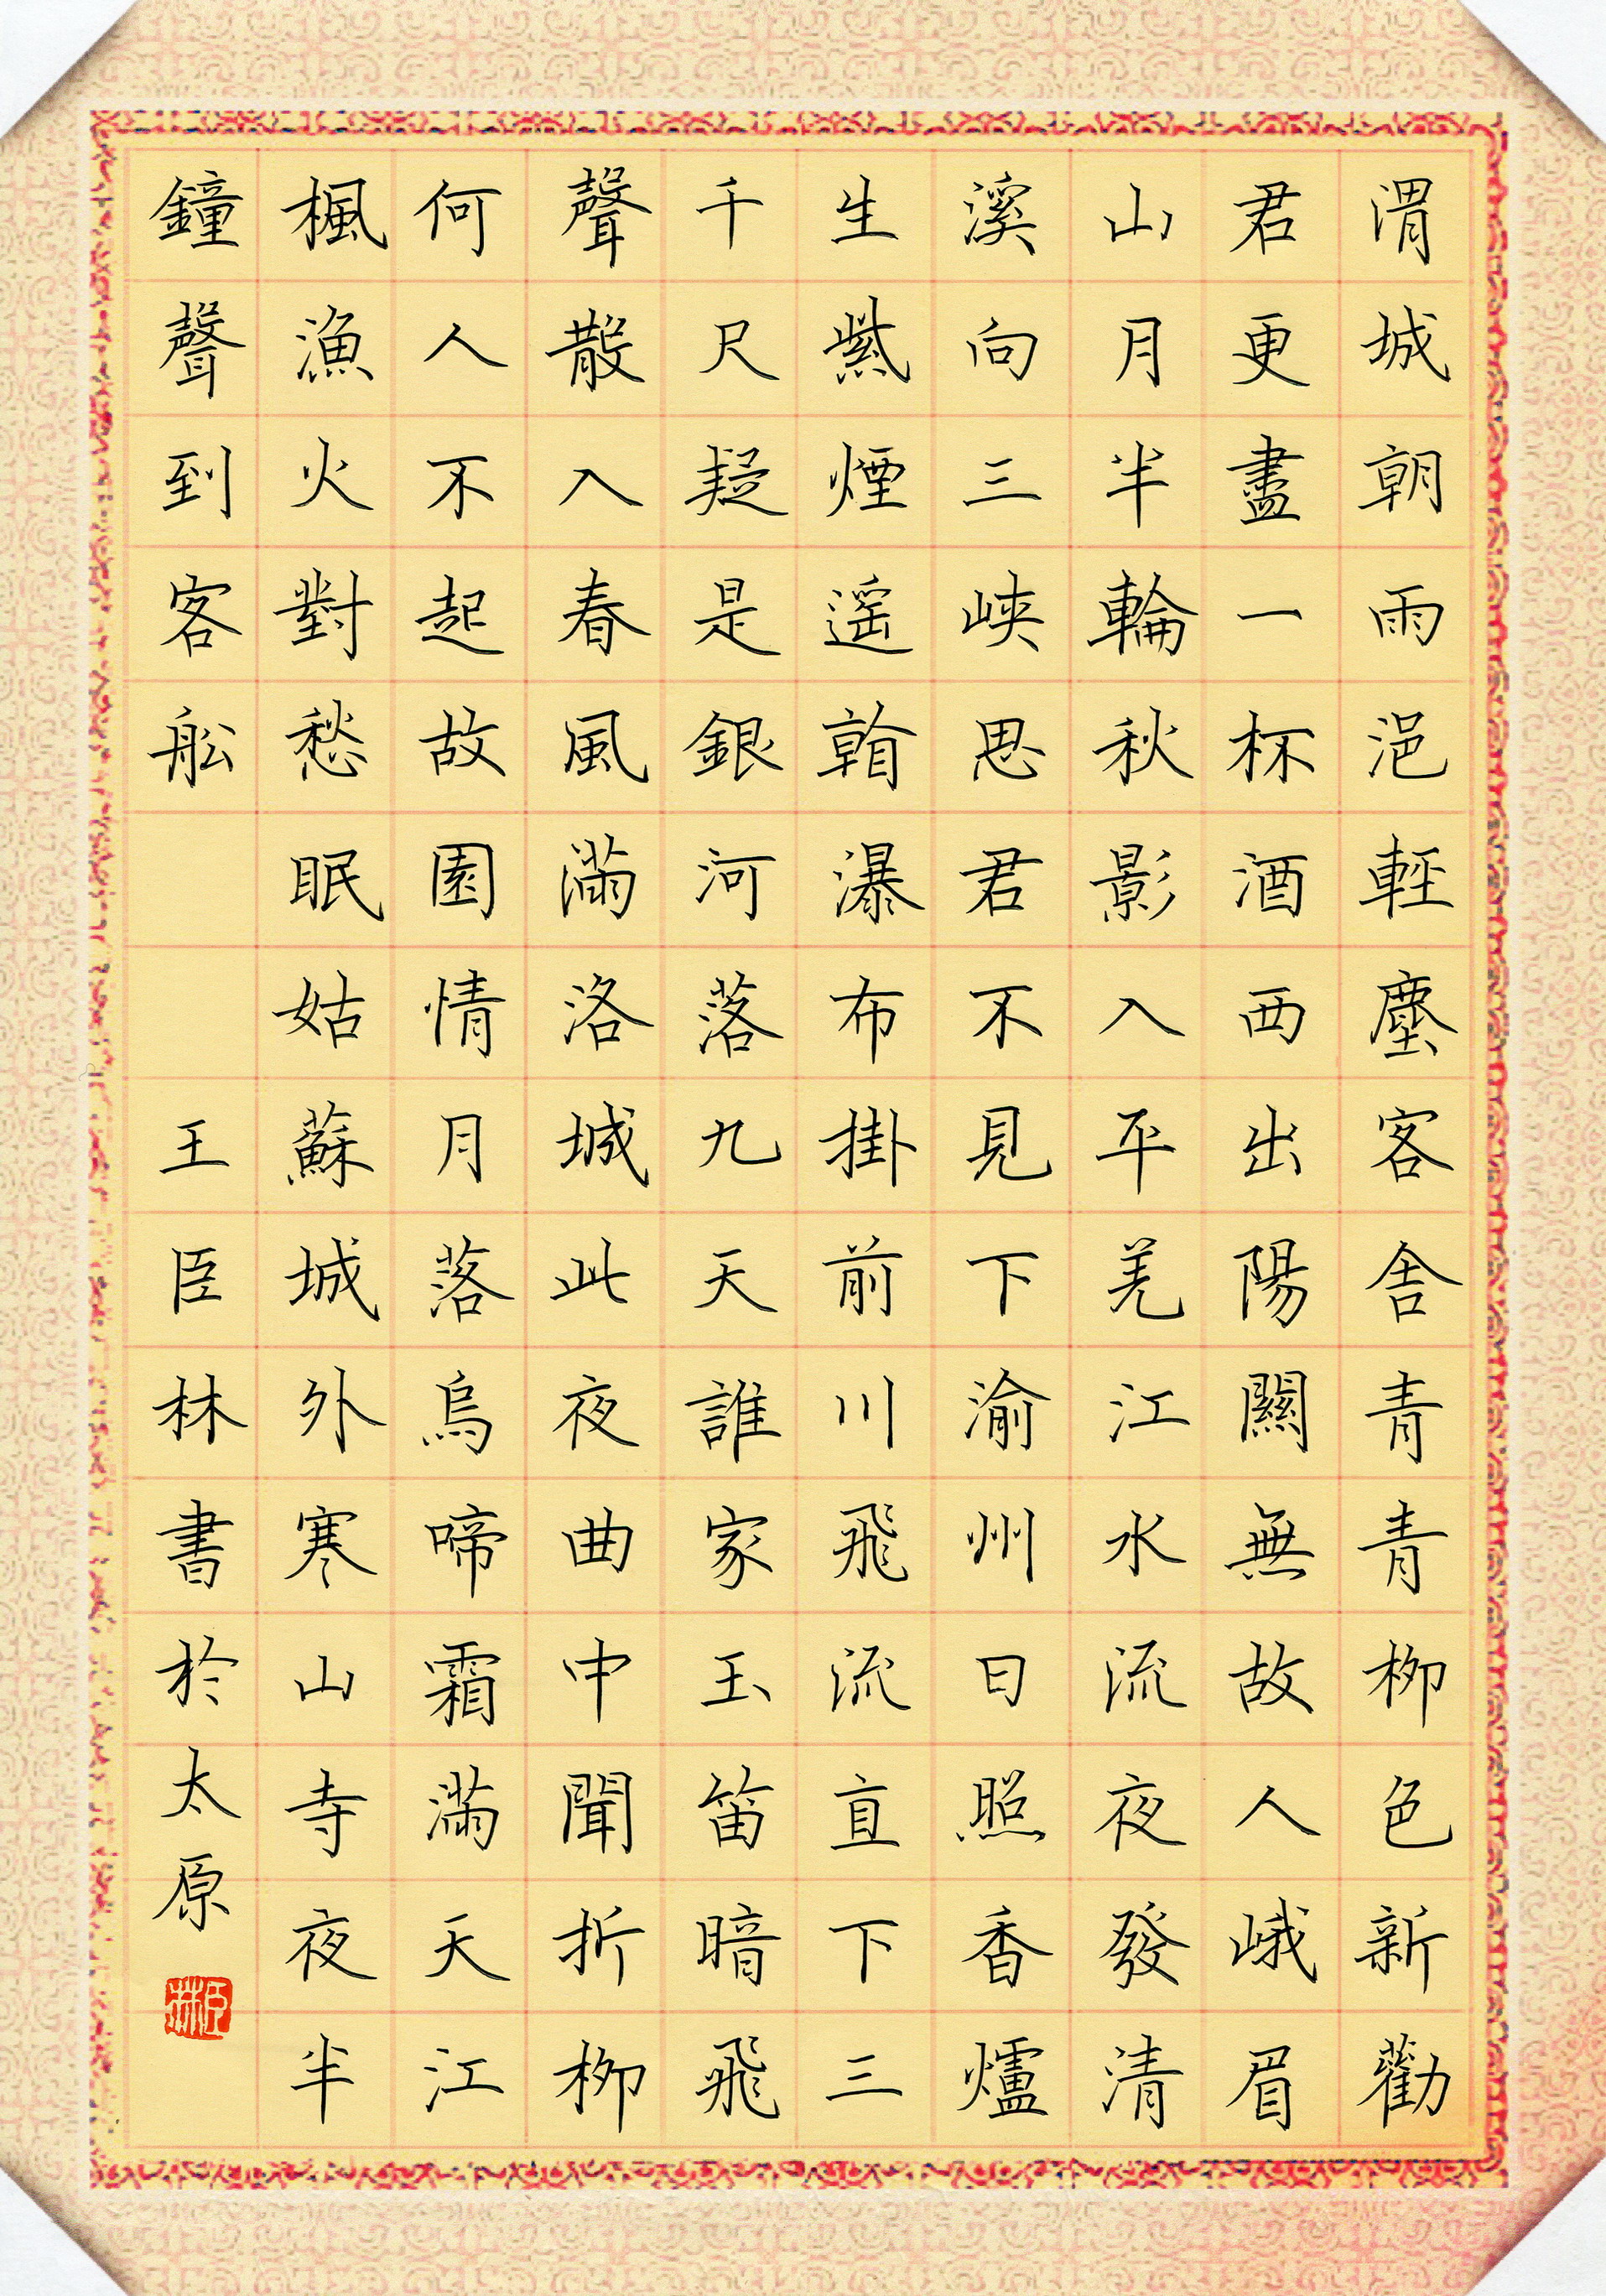 渭城朝雨浥輕塵客舍青青柳色新勸
君更盡一杯酒西出陽關無故人峨眉
山月半輪秋影入平羌江水流夜發清
溪向三峽思君不見下渝州日照香爐
生紫煙遙看瀑布掛前川飛流直下三
千尺疑是銀河落九天誰家玉笛暗飛
聲散入春風滿洛城此夜曲中聞折柳
何人不起故園情月落烏啼霜滿天江
楓漁火對愁眠姑蘇城外寒山寺夜半
鐘聲到客舩 王臣林書於太原
臣林